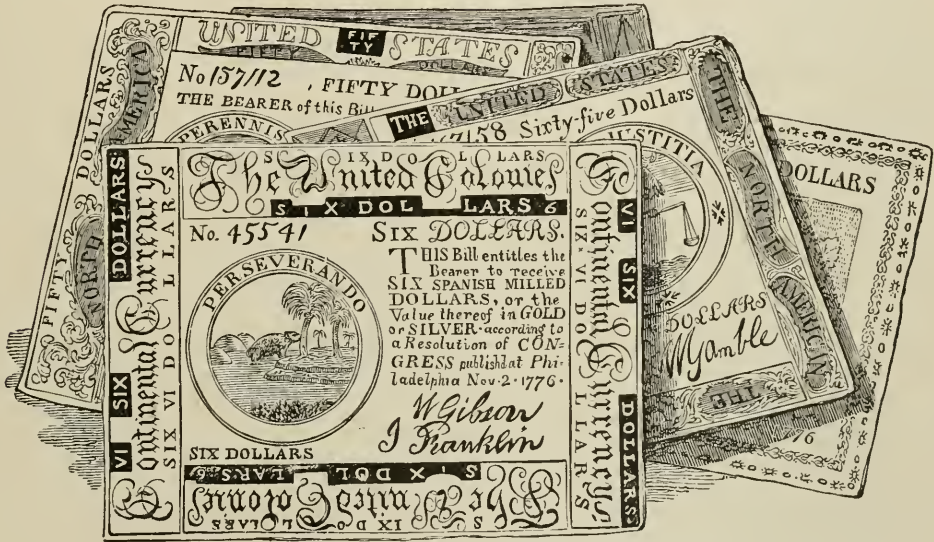 UNITED FIF
TY STATES
FIFTY DOLLARS
FIFTY DOLLARS
NORTH AMERICA
No 157112 , FIFTY DOLL
THE BEARER of this Bill
PERENNIS
THE UNITED STATES
7158 Sixty-five Dollars
JUSTITIA
THE NORTH AMERICAN
DOLLARS
WGamble
THE
DOLLARS
76
SIX DOLLARS
The United Colonies
SIX DOLLARS 6
No. 45541 SIX DOLLARS.
PERSEVERANDO
THIS Bill entitles the
Bearer to receive
SIX SPANISH MILLED
DOLLARS, or the
Value thereof in GOLD
or SILVER according to
a Resolution of CON=
GRESS publishd at Phi-
ladelphia Nov. 2. 1776.
W Gibson
J Franklin
SIX DOLLARS
VI SIX DOLLARS
Continental Currency
SIX VI DOLLARS
VI SIX DOLLARS
Continental Currency
SIX VI DOLLARS
SIX DOLLARS 6
The United Colonies
SIX DOLLARS